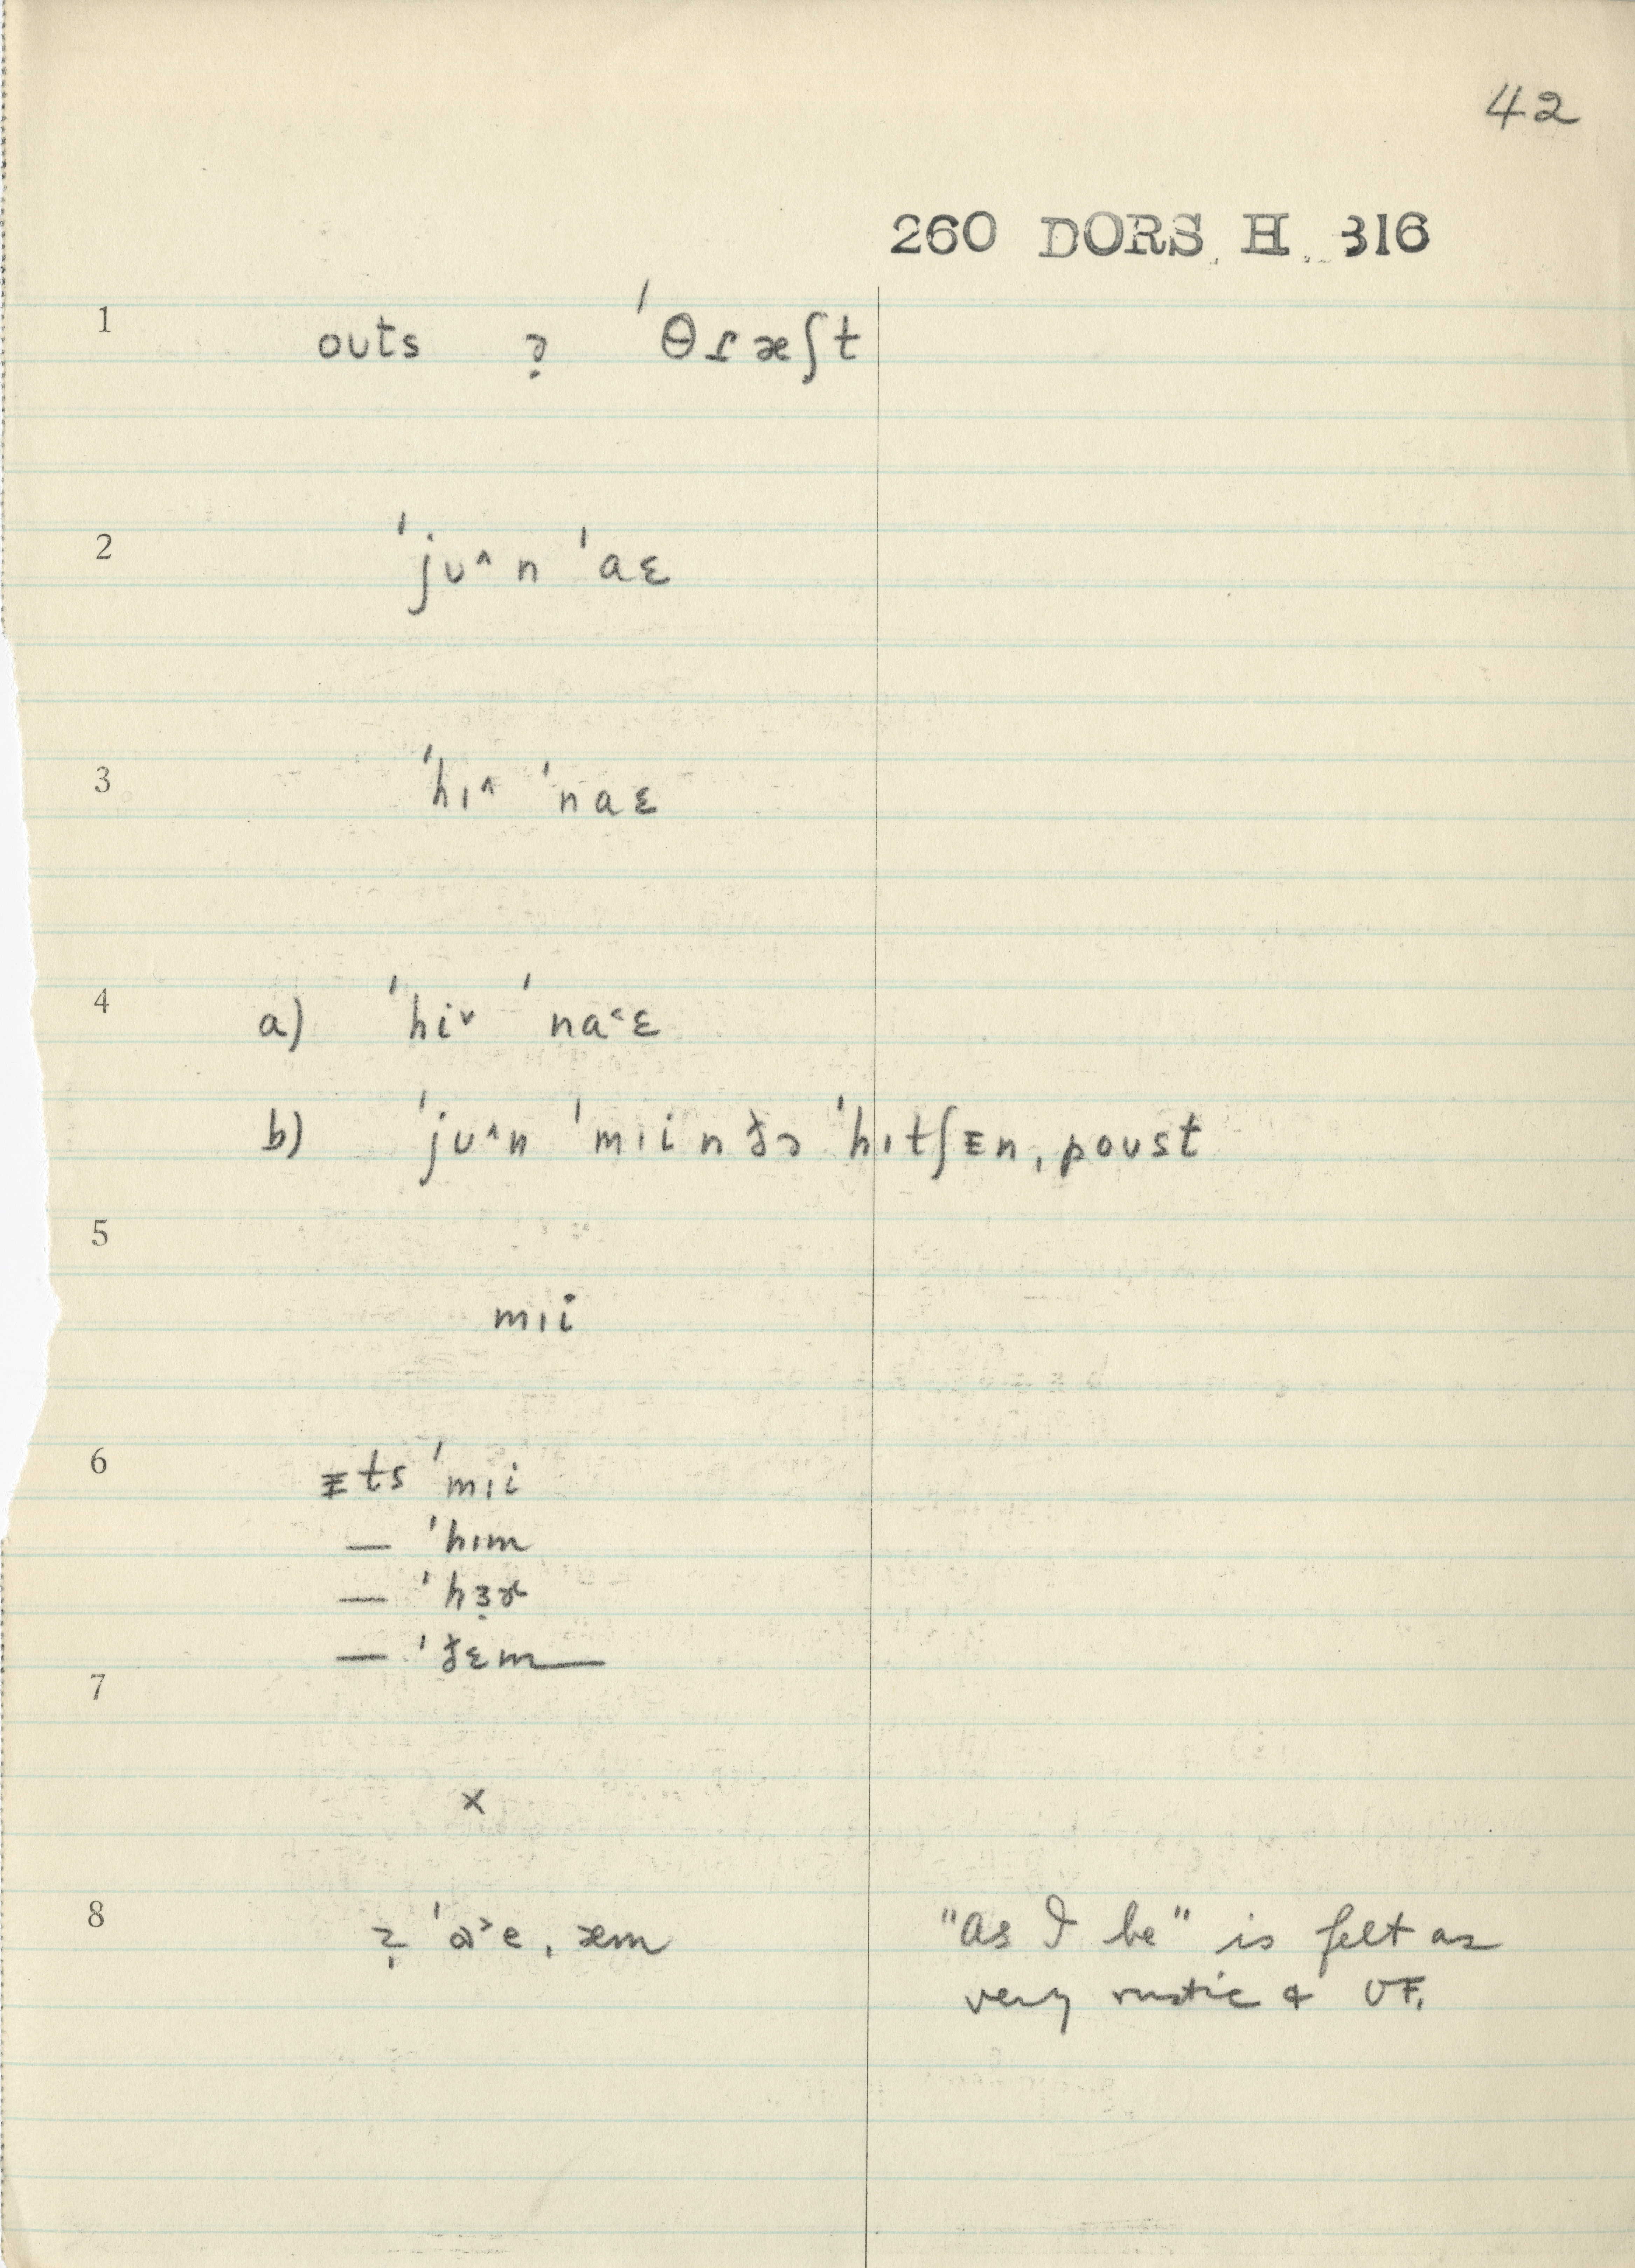 42
260 DORS. H. 316
1
oʊts ə̣ ˈθɾæʃt
2
ˈjʊ^n ˈaɛ
3
ˈhɪ^ ˈnaɛ
4
a) ˈhi˅ ˈna˂ɛ
b) ˈjʊ^n ˈmɪi n ðə ˈhɪtʃᵻn ˌpoʊst
5
mɪi
6
ᵻts ˈmɪi
— ˈhɪm
— ˈhɜ̣ɚ
— ˈðɛm —
7
x
8
ˈɒ˃e ˌæm
"as I be" is felt as
very rustic & OF.